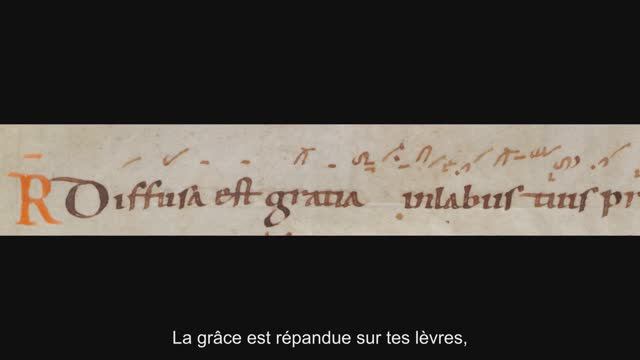 R Diffusa est gratia inlabiis tuis pr
La grâce est répandue sur tes lèvres,